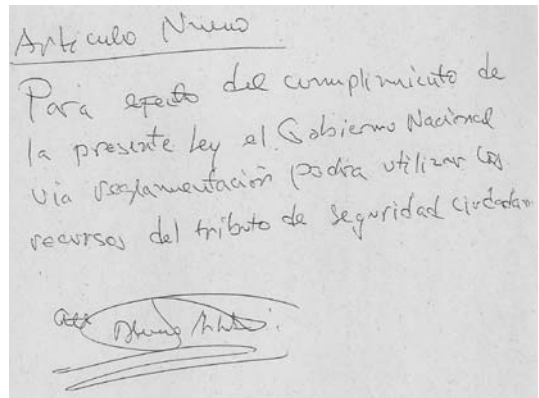 Articulo Nuevo
Para efecto del cumplimiento de
la presente Ley el Gobierno Nacional
via reglamentación podra utilizar los
recursos del tributo de seguridad ciudadana